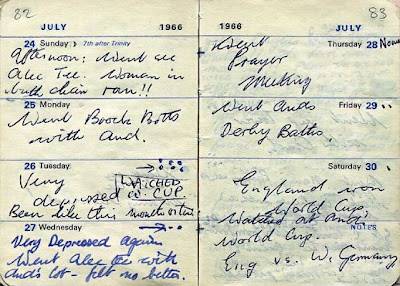 82
JULY 1966
24 Sunday 7th after Trinity
Afternoon: Went see
Alec Tee. Woman in
bath chair ran!!
25 Monday
Went Boock Botts
with And.
26 Tuesday
Very
depressed
WATCHED
W. CUP
Been like this months often
27 Wednesday
Very Depressed again
Went Alec Tee with
And's lot - felt no better.
83
1966 JULY
Thursday 28
Went
Prayer
Meeting
Friday 29
Went Ands
Derby Baths.
Saturday 30
England won
World Cup.
Watched at And's
NOTES
World Cup.
Eng vs. W. Germany